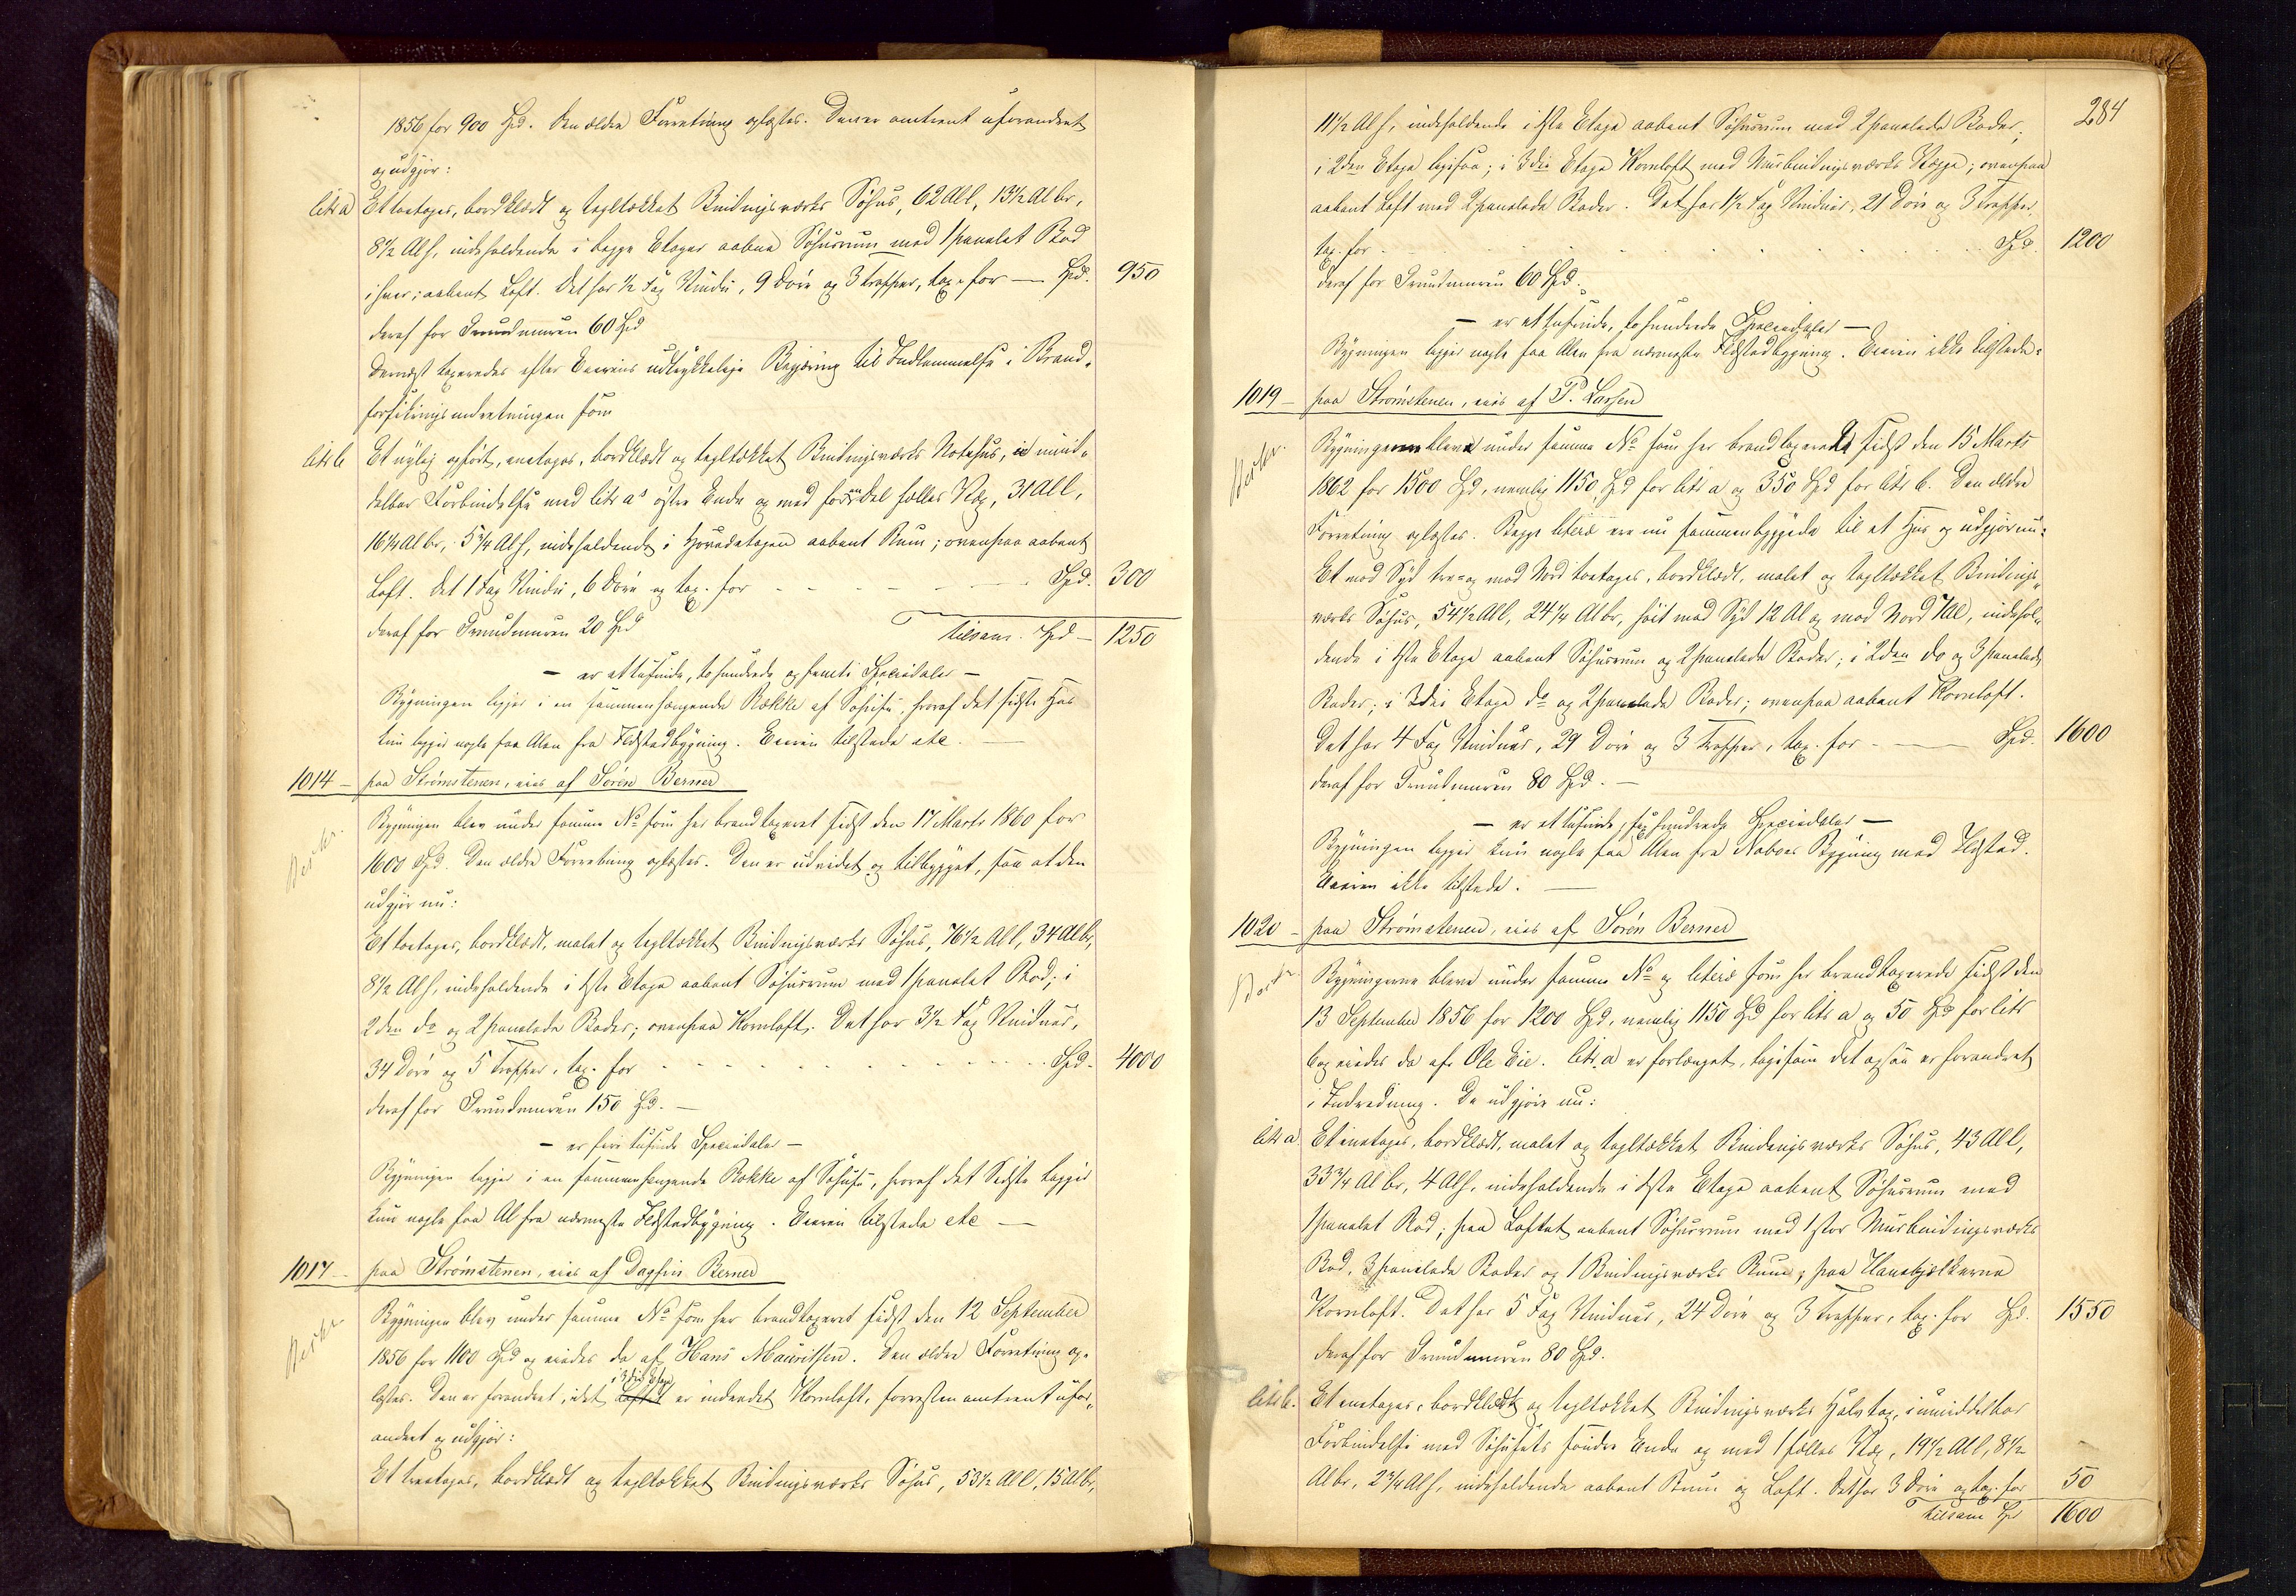 1856 for 900 Spd. Den ældre Forretning oplæstes. Den er omtrent uforandret
og udgjør:
litr a Et toetages, bordklædt og tegltækket Bindingsværks Søhus, 62 Al l, 13½ Al br,
8½ Al h, indeholdende i begge Etager aabne Søhusrum med 1 panelet Bod
i hver; aabent Loft. Det har ½ Fag Vindu, 9 Døre og 3 Trapper, tax. for — Spd. 950
deraf for Grundmuren 60 Spd
Dernæst taxeredes efter Eierens udtrykkelige Begjæring til Indlemmelse i Brand-
forsikringsindretningen som
litr b Et nylig opført, enetages, bordklædt og tegltækket Bindingsværks Notehus, i umid-
delbar Forbindelse med litr a's østre Ende og med for en Del fælles Væg, 31 Al l,
16¼ Al br, 5¾ Al h, indeholdende i Hovedetagen aabent Rum; ovenpaa aabent
Loft. Det 1 Fag Vindu, 6 Døre og tax. for — Spd. 300
deraf for Grundmuren 20 Spd
tilsam. Spd — 1250
— er et tusinde, to hundrede og femti Speciedaler —
Bygningen ligger i en sammenhængende Række af Søhuse, hvoraf det sidste Hus
kun ligger nogle faa Alen fra Ildstedbygning. Eieren tilstede etc. —
1014 — paa Strømstenen, eies af Sören Berner
Bygningen blev under samme No som her brandtaxeret sidst den 17 Marts 1860 for
1600 Spd. Den ældre Forretning oplæstes. Den er udvidet og tilbygget, saa at den
udgjør nu:
Et toetages, bordklædt, malet og tegltækket Bindingsværks Søhus, 76½ Al l, 34 Al br,
8½ Al h, indeholdende i 1ste Etage aabent Søhusrum med 1 panelet Bod; i
2den do og 2 panelede Boder; ovenpaa Kornloft. Det har 3½ Fag Vinduer,
34 Døre og 5 Trapper, tax. for — Spd. 4000
deraf for Grundmuren 150 Spd. —
— er fire tusinde Speciedaler —
Bygningen ligger i en sammenhængende Række af Søhuse, hvoraf det Sidste ligger
kun nogle faa Al fra nærmeste Ildstedbygning. Eieren tilstede etc —
1017 — paa Strømstenen, eies af Dagfin Berner
Bygningen blev under samme No som her brandtaxeret sidst den 12 September
1856 for 1100 Spd og eiedes da af Hans Mauritsen. Den ældre Forretning op-
i 3die Etage
læstes. Den er forandret, idet Loftet er indredet Kornloft, forresten omtrent ufor-
andret og udgjør:
Et treetages, bordklædt og tegltækket Bindingsværks Søhus, 53½ Al l, 15 Al br,
284
11½ Al h, indeholdende i 1ste Etage aabent Søhusrum med 2 panelede Boder;
i 2den Etage ligesaa; i 3die Etage Kornloft med Murbindingsværks Vægge; ovenpaa
aabent Loft med 2 panelede Boder. Det har 1½ Fag Vinduer, 21 Døre og 3 Trapper,
tax. for — Spd. 1200
deraf for Grundmuren 60 Spd.
— er et tusinde, to hundrede Speciedaler —
Bygningen ligger nogle faa Alen fra nærmeste Ildstedbygning. Eieren ikke tilstede.
1019 — paa Strømstenen, eies af P. Larsen
Bygningerne bleve under samme No som her brandtaxerede sidst den 15 Marts
1862 for 1500 Spd, nemlig 1150 Spd for litr a og 350 Spd for litr b. Den ældre
Forretning oplæstes. Begge literæ ere nu sammenbyggede til et Hus og udgjør nu:
Et mod Syd tre- og mod Nord toetages, bordklædt, malet og tegltækket Bindings-
værks Søhus, 54½ Al l, 24¼ Al br, høit mod Syd 12 Al og mod Nord 7 Al, indehol-
dende i 1ste Etage aabent Søhusrum og 2 panelede Boder; i 2den do og 3 panelede
Boder; i 3die Etage do og 2 panelede Boder; ovenpaa aabent Kornloft.
Det har 4 Fag Vinduer, 29 Døre og 3 Trapper, tax. for — Spd. 1600
deraf for Grundmuren 80 Spd. —
— er et tusinde, sex hundrede Speciedaler —
Bygningen ligger kun nogle faa Alen fra Naboers Bygning med Ildsted.
Eieren ikke tilstede. —
1020 — paa Strømstenen, eies af Sören Berner
Bygningerne bleve under samme No og literæ som her brandtaxerede sidst den
13 September 1856 for 1200 Spd, nemlig 1150 Spd for litr a og 50 Spd for litr
b og eiedes da af Ole Eie. Litr. a er forlænget, ligesom det ogsaa er forandret
i Indredning. De udgjøre nu:
litr a Et enetages, bordklædt, malet og tegltækket Bindingsværks Søhus, 43 Al l,
33¾ Al br, 4 Al h, indeholdende i 1ste Etage aabent Søhusrum med
1 panelet Bod; paa Loftet aabent Søhusrum med 1 stor Murbindingsværks
Bod, 3 panelede Boder og 1 Bindingsværks Rum; paa Hanebjælkerne
Kornloft. Det har 5 Fag Vinduer, 24 Døre og 3 Trapper, tax. for Spd. 1550
deraf for Grundmuren 80 Spd.
litr b. Et enetages, bordklædt og tegltækket Bindingsværks Halvtag, i umiddelbar
Forbindelse med Søhusets søndre Ende og med 1 fælles Væg, 19½ Al l, 8½
Al br, 2¾ Al h, indeholdende aabent Rum og Loft. Det har 3 Døre og tax. for 50
tilsam Spd 1600